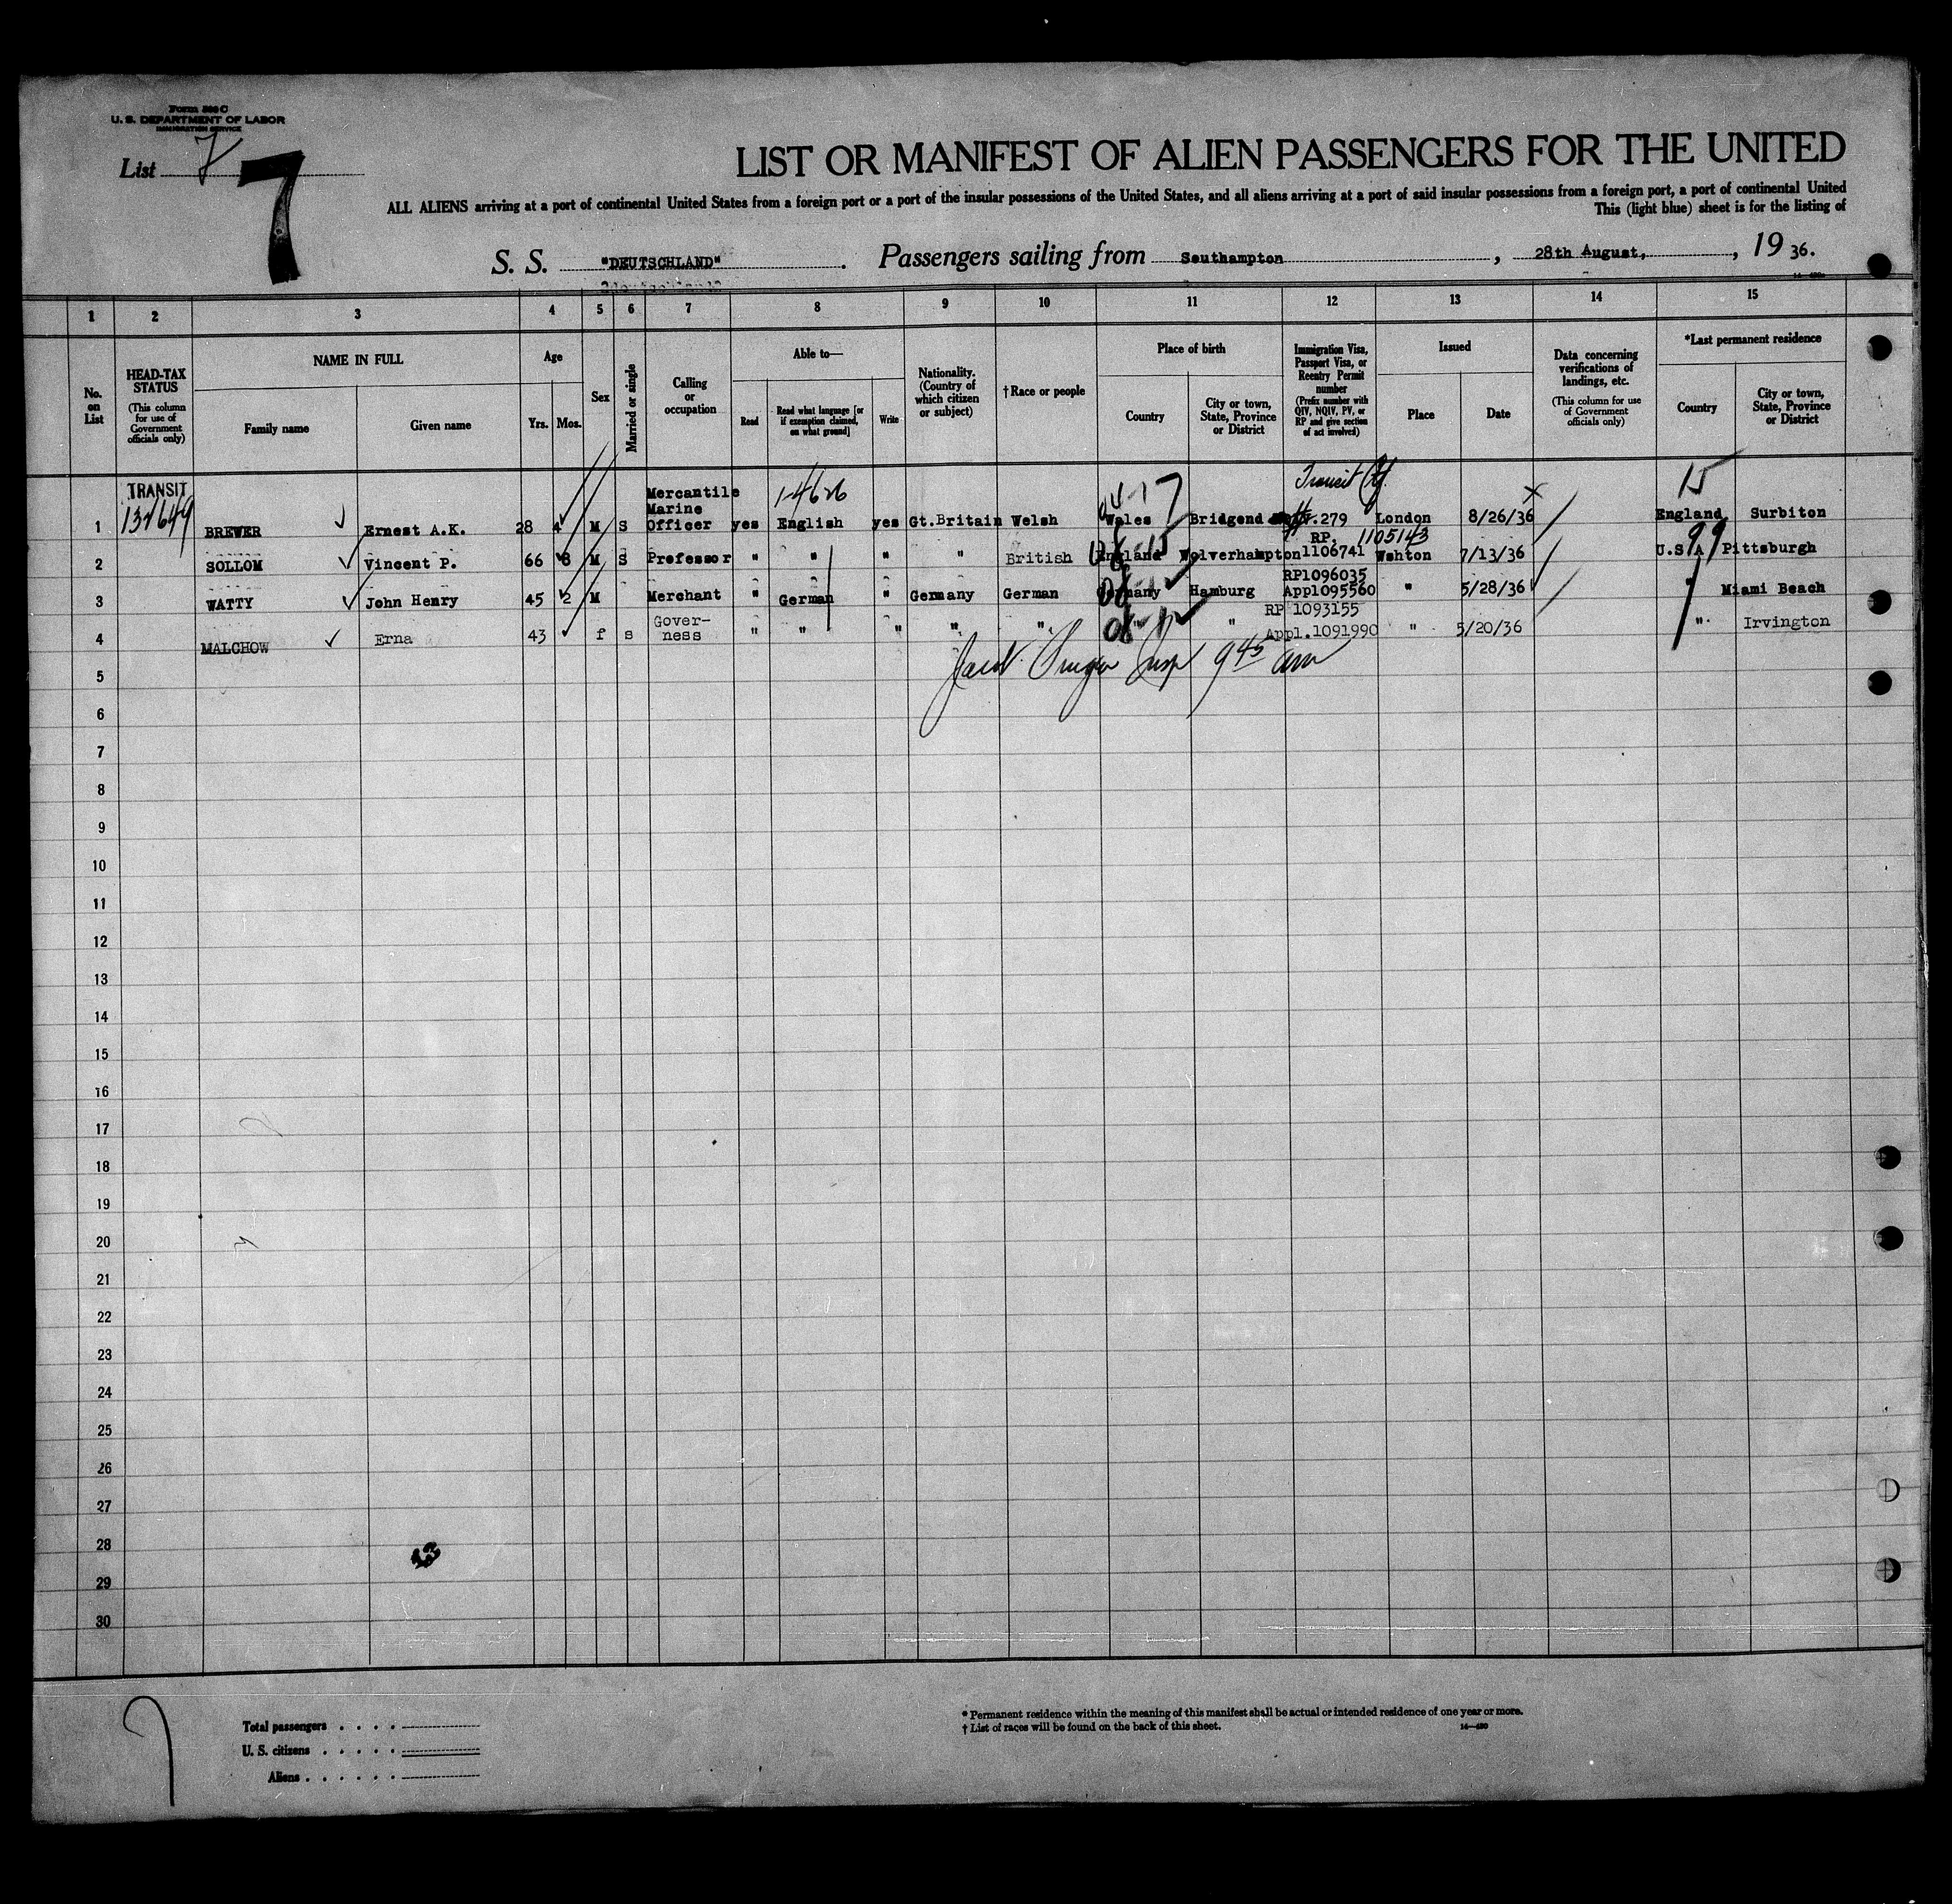 Form 500 C
U. S. DEPARTMENT OF LABOR
IMMIGRATION SERVICE
List 7
7
LIST OR MANIFEST OF ALIEN PASSENGERS FOR THE UNITED
ALL ALIENS arriving at a port of continental United States from a foreign port or a port of the insular possessions of the United States, and all aliens arriving at a port of said insular possessions from a foreign port, a port of continental United
This (light blue) sheet is for the listing of
S. S. "DEUTSCHLAND". Passengers sailing from Southampton, 28th August, , 1936.
1 2 3 4 5 6 7 8 9 10 11 12 13 14 15
No. on List
HEAD-TAX STATUS
(This column for use of Government officials only)
NAME IN FULL
Family name
Given name
Age
Yrs. Mos.
Sex
Married or single
Calling or occupation
Able to—
Read
Read what language [or if exemption claimed, on what ground]
Write
Nationality. (Country of which citizen or subject)
† Race or people
Place of birth
Country
City or town, State, Province or District
Immigration Visa, Passport Visa, or Reentry Permit number
(Prefix number with QIV, NQIV, PV, or RP and give section of act involved)
Issued
Place
Date
Data concerning verifications of landings, etc.
(This column for use of Government officials only)
*Last permanent residence
Country
City or town, State, Province or District
TRANSIT Mercantile 1-4626 04-17 Transit 15
1 132649 BREWER Ernest A.K. 28 4 M S Marine Officer yes English yes Gt.Britain Welsh Wales Bridgend 279 London 8/26/36 England Surbiton
RP. 1105143
2 SOLLOM Vincent P. 66 8 M S Professor " " " " British England Wolverhampton 1106741 Wshton 7/13/36 U.S.A 99 Pittsburgh
RP1096035
3 WATTY John Henry 45 2 M Merchant " German " Germany German Germany Hamburg Appl095560 " 5/28/36 Miami Beach
Gover- RP 1093155
4 MALCHOW Erna 43 f s ness " " " " " " " Appl.1091990 " 5/20/36 " Irvington
Insp 9 45 am
5
6
7
8
9
10
11
12
13
14
15
16
17
18
19
20
21
22
23
24
25
26
27
28
29
30
Total passengers . . . .
U. S. citizens . . . . .
Aliens . . . . . .
* Permanent residence within the meaning of this manifest shall be actual or intended residence of one year or more.
† List of races will be found on the back of this sheet.
14—480